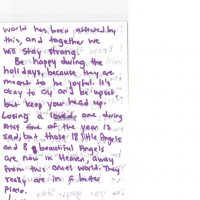 world has been affected by
this, and together we
will stay strong.
Be happy during the
holidays, because they are
meant to be joyful. It's
okay to cry and be upset
but keep your head up.
Losing a loved one during
any time of the year is
sad, but those 18 little Angels
and 8 beautiful Angels
are now in Heaven, away
from this cruel world. They
really are in a better
place.